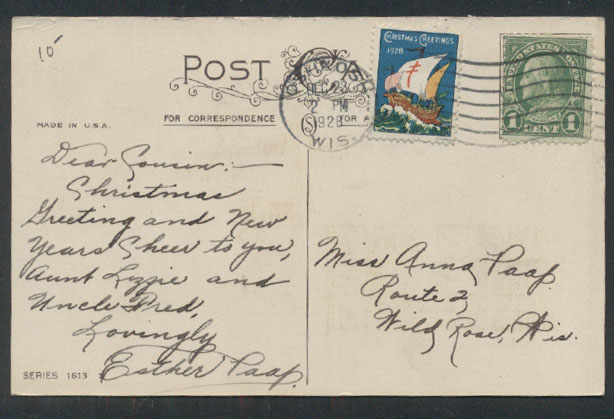 10
POST
OSHKOSH
DEC 23
2 PM
1928
WIS.
CHRISTMAS GREETINGS
1928
UNITED STATES POSTAGE
1 CENT 1
MADE IN U.S.A.
FOR CORRESPONDENCE
FOR A
Dear Cousin:—
Christmas
Greeting and New
Years Cheer to you,
Aunt Lizzie and
Uncle Fred,
Lovingly
Esther Paap.
Miss Anna Paap
Route 2,
Wild Rose, Wis.
SERIES 1613